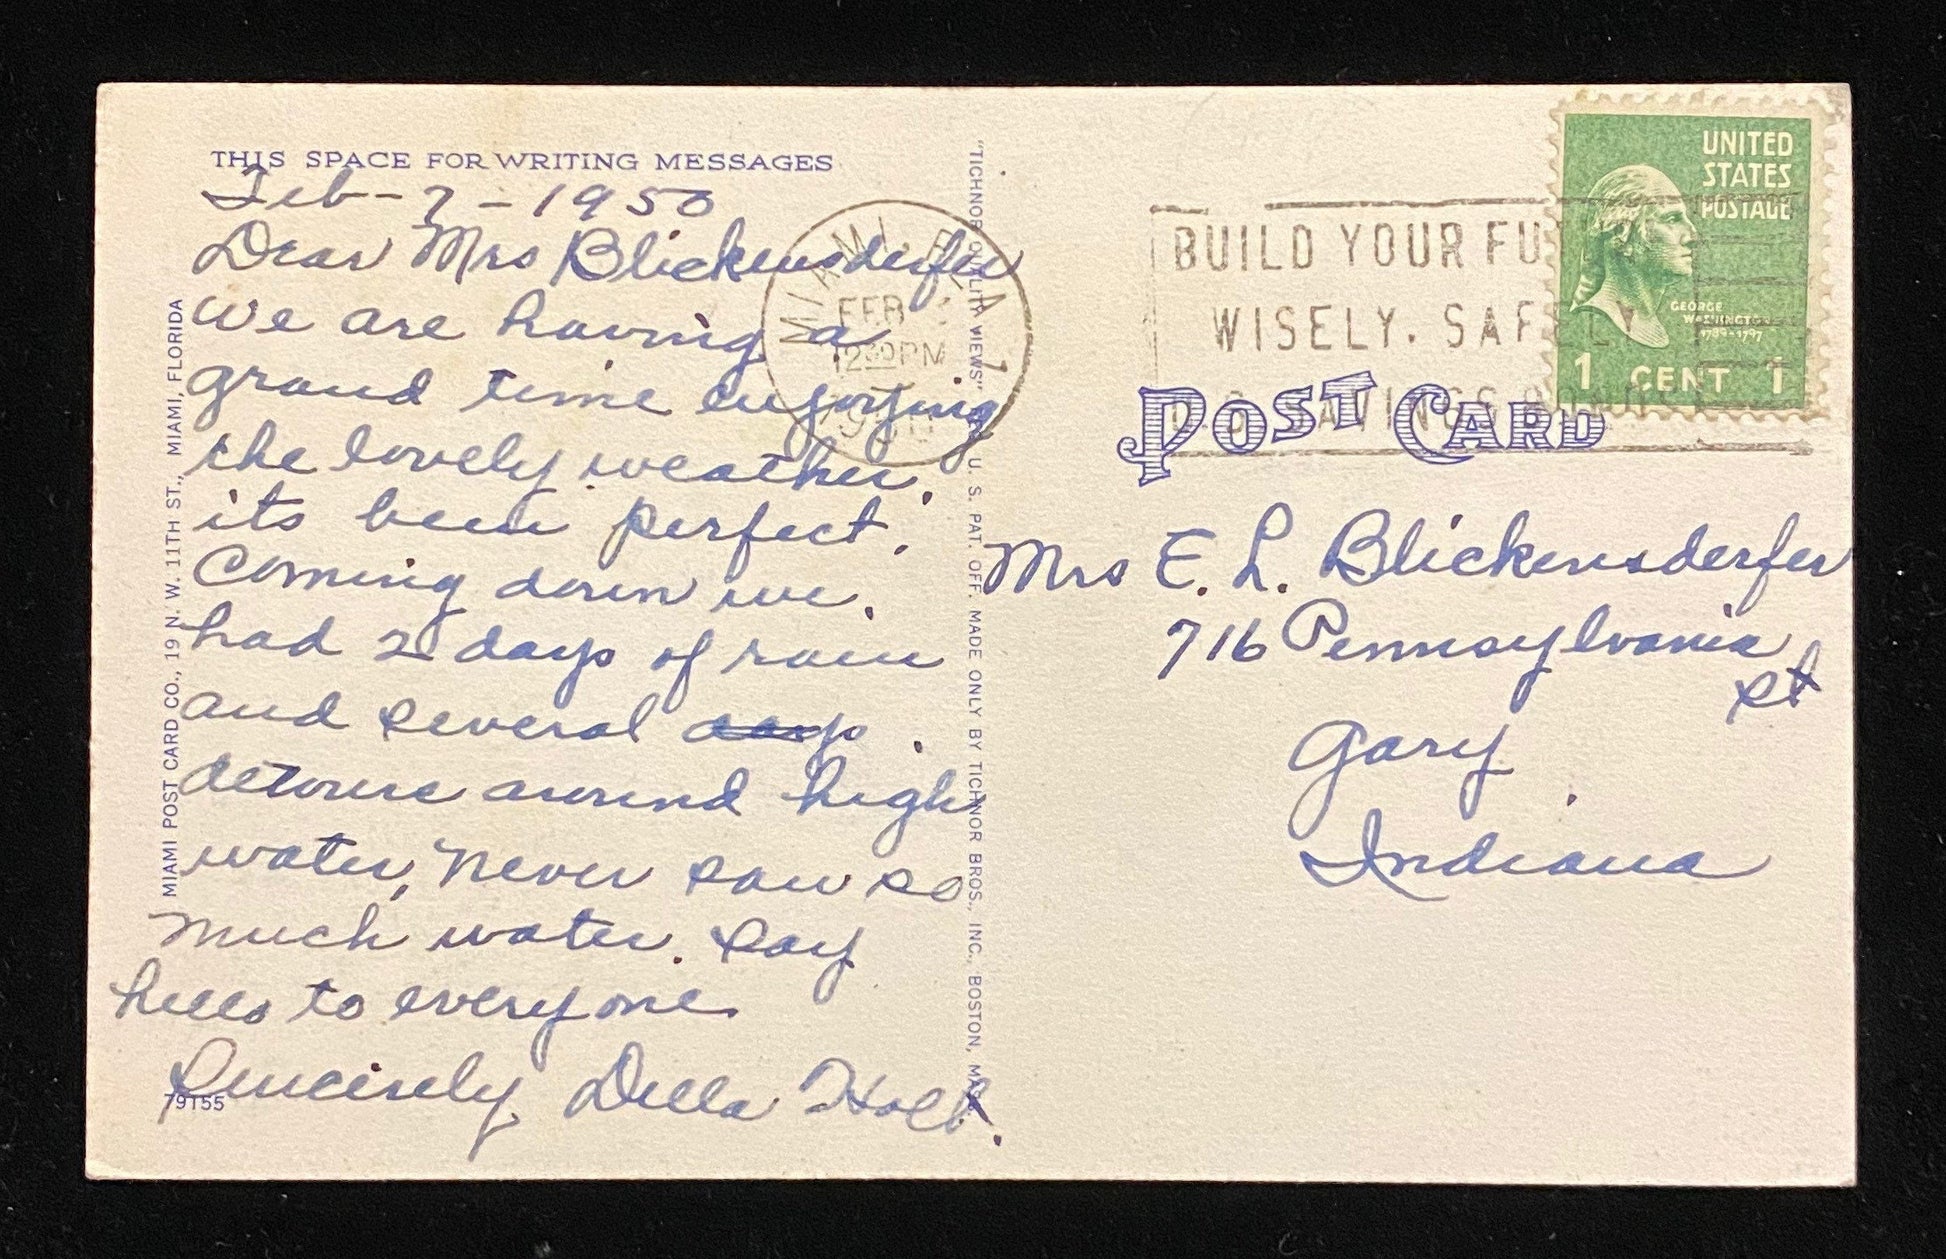 THIS SPACE FOR WRITING MESSAGES
Feb-7-1950
Dear Mrs Blickensderfer
We are having a
grand time enjoying
the lovely weather.
its been perfect.
Coming down we.
had 2 days of rain
and several
detours around high
water, never saw so
much water. say
hello to everyone.
Sincerely Della Holt.
79155
MIAMI POST CARD CO., 19 N. W. 11TH ST., MIAMI, FLORIDA
"TICHNOR QUALITY VIEWS" U. S. PAT. OFF. MADE ONLY BY TICHNOR BROS., INC., BOSTON,
MIAMI, FLA. 1
FEB
12 30 PM
1950
BUILD YOUR
WISELY, SAFELY
SAVINGS
UNITED
STATES
POSTAGE
GEORGE
WASHINGTON
1789-1797
1 CENT 1
POST CARD
Mrs E. L. Blickensderfer
716 Pennsylvania
st
Gary
Indiana